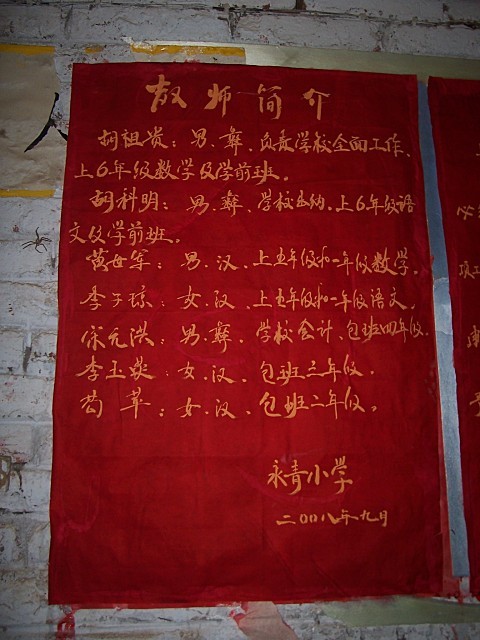 教师简介
胡祖贵：男、彝、负责学校全面工作、
上6年级数学及学前班。
胡科明：男、彝、学校出纳、上6年级语
文及学前班。
黄世军：男、汉、上五年级和一年级数学。
李子琼：女、汉、上五年级和一年级语文。
宋元洪：男、彝、学校会计、包班四年级.
李玉荧：女、汉、包班三年级.
苟苹：女、汉、包班二年级。
永青小学
二00八年九月
人